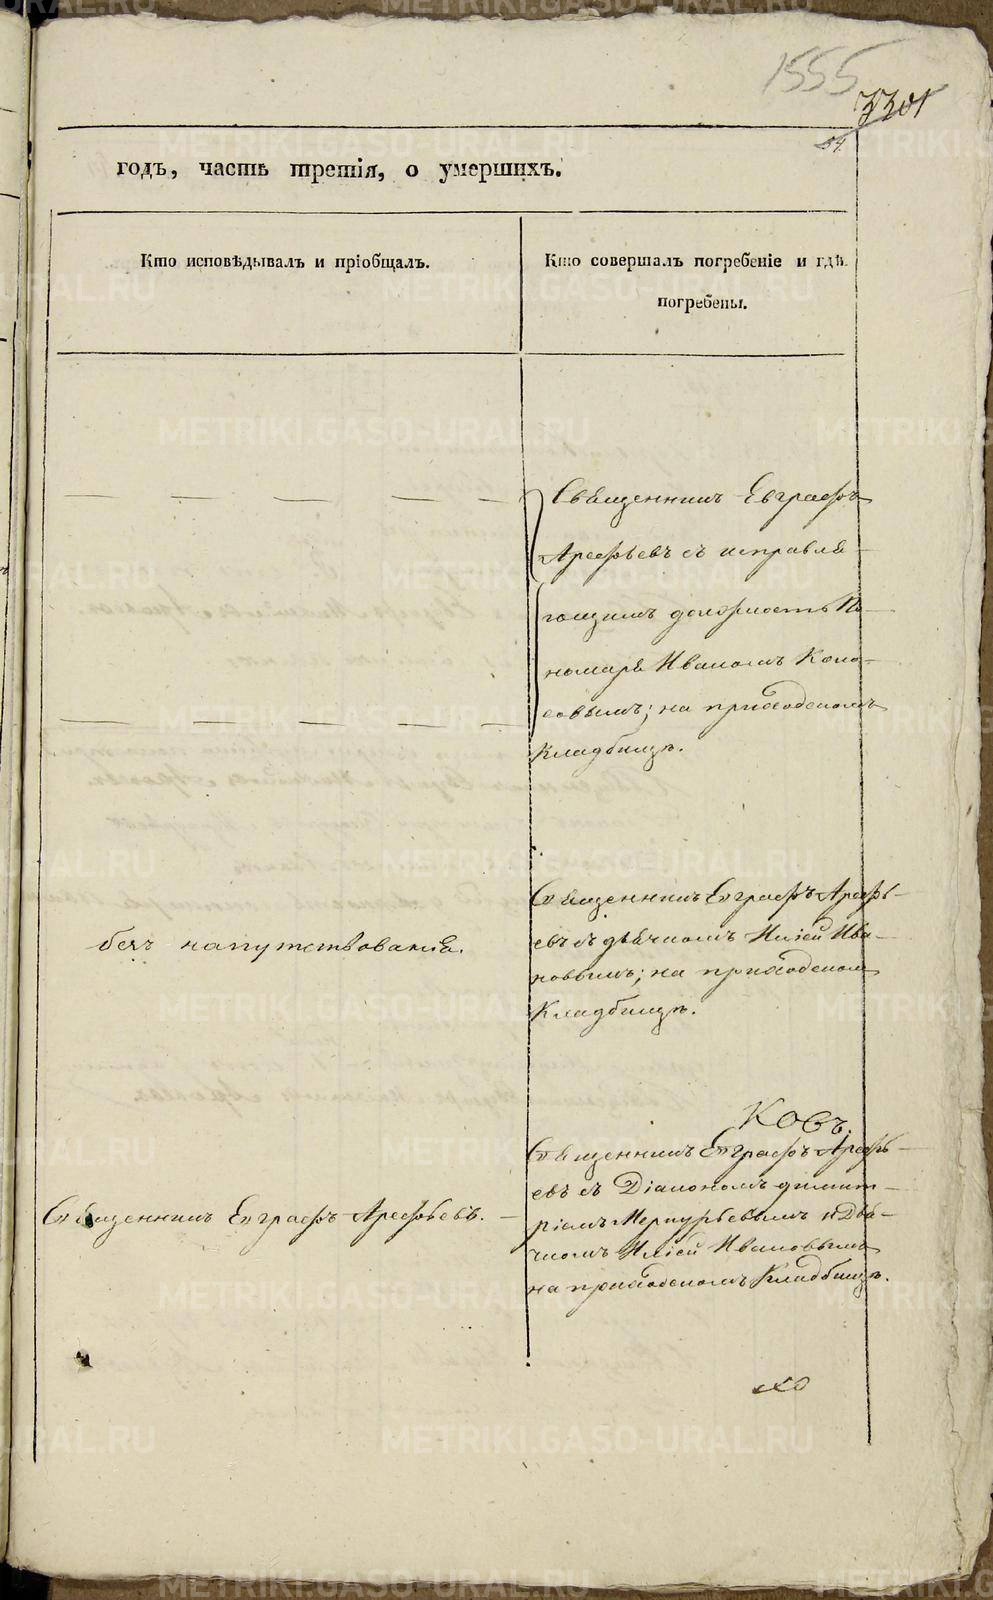 1555
3301
54.
годъ, часть третія, о умершихъ.
Кто исповѣдывалъ и пріобщалъ.
Кто совершалъ погребеніе и гдѣ
погребены.
Священникъ Евграфъ
Арефьевъ съ исправля-
ющимъ должность По-
номаря Иваномъ Коло-
совымъ; на приходскомъ
Кладбищѣ.
Священникъ Евграфъ Арефь-
евъ съ дьячкомъ Иліей Ива-
новымъ; на приходском
Кладбищѣ.
безъ напутствованія.
ковъ.
Священникъ Евграфъ Арефь-
евъ съ Діакономъ Димит-
ріемъ Меркурьевымъ и Дья-
чкомъ Иліей Ивановымъ
на приходскомъ Кладбищѣ.
Священникъ Евграфъ Арефьевъ.
METRIKI.GASO-URAL.RU